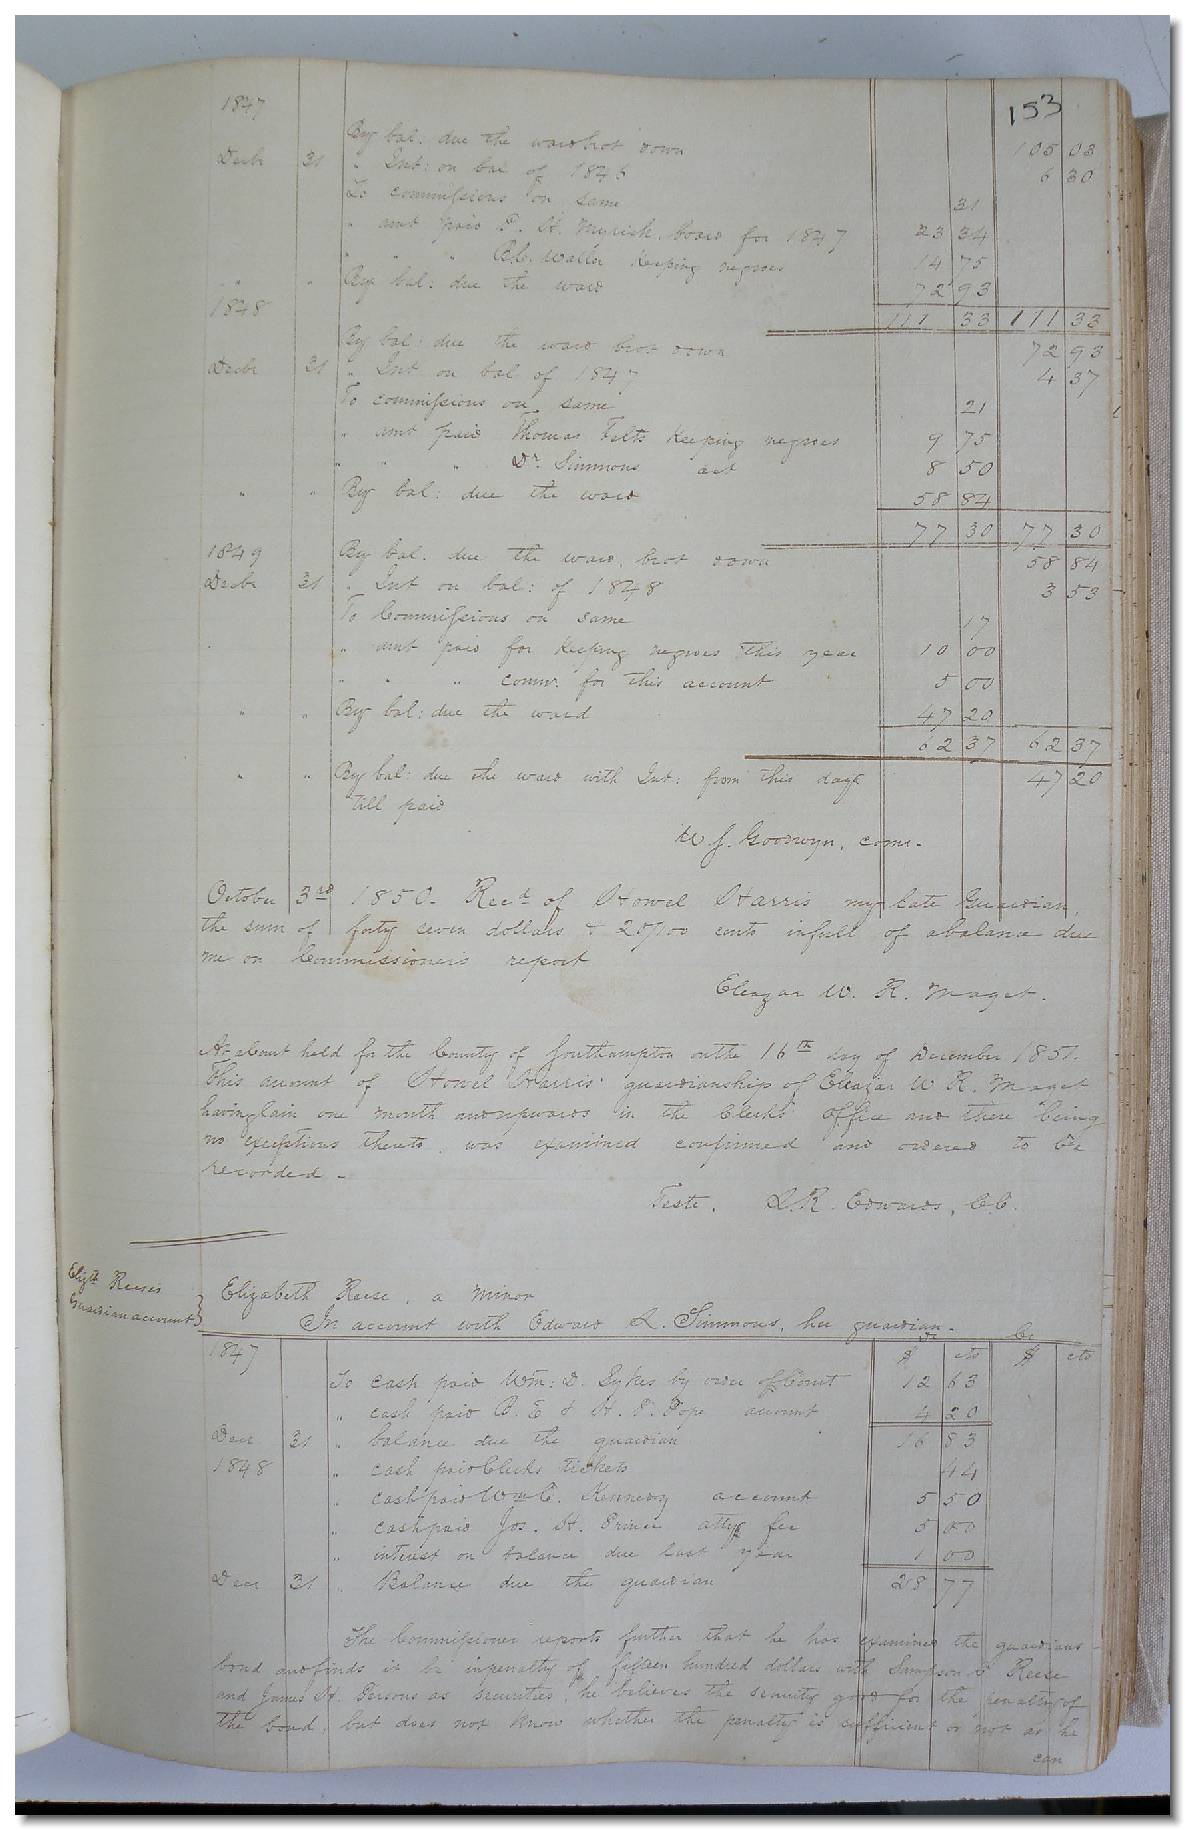 153
1847
By bal: due the ward brot down 105 03
Decbr 31 " Int: on bal of 1846 6 30
To commissions on same 31
" amt paid P. H. Myrick, board for 1847 23 34
" " " B.C. Waller keeping negroes 14 75
" " By bal: due the ward 72 93
1848 111 33 111 33
By bal: due the ward brot down 72 93
Decbr 31 " Int on bal of 1847 4 37
To commissions on same 21
" amt paid Thomas Felts keeping negroes 9 75
" " " Dr. Simmons act 8 50
" " By bal: due the ward 58 84
77 30 77 30
1849 By bal. due the ward, brot down 58 84
Decbr 31 " Int on bal: of 1848 3 53
To Commissions on same 17
" amt paid for keeping negroes this year 10 00
" " " comr. for this account 5 00
" " By bal: due the ward 47 20
62 37 62 37
" " By bal: due the ward with Int: from this day 47 20
till paid
W J. Goodwyn, comr.
October 3rd 1850. Recd of Howel Harris my late Guardian,
the sum of forty seven dollars & 20/100 cents in full of a balance due
me on Commissioners report
Eleazar W. R. Maget.
At a Court held for the County of Southampton on the 16th day of December 1851.
This account of Howel Harris' guardianship of Eleazar W. R. Maget
having lain one month and upwards in the Clerks Office and there being
no exceptions thereto, was examined confirmed and ordered to be
recorded.
Teste, L.R. Edwards, C.C.
Elizth Reese's
Guardian account
Elizabeth Reese, a minor
In account with Edward L. Simmons, her guardian.
Dr Cr
1847 $ cts $ cts
To cash paid Wm: D. Sykes by order of Court 12 63
" cash paid B. E & H. P. Pope account 4 20
Decr 31 " balance due the guardian 16 83
1848 " cash paid Clerks tickets 44
" cash paid Wm C. Kennedy account 5 50
" cash paid Jos. H. Prince attys fee 5 00
" interest on balance due last year 1 00
Decr 31 " Balance due the guardian 28 77
The Commissioner reports further that he has examined the guardians
bond and finds it be in penalty of fifteen hundred dollars with Sampson C Reese
and James H. Persons as securities, he believes the security good for the penalty of
the bond, but does not know whether the penalty is sufficient or not as he
can